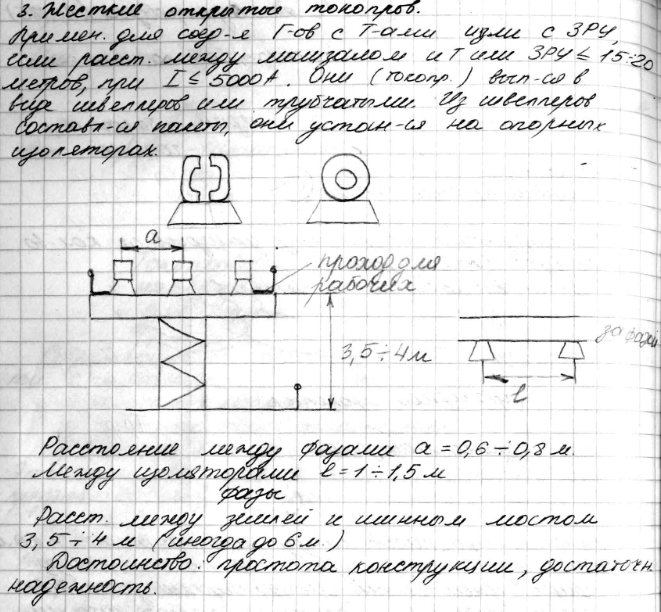 3. Жесткие открытые токопров.
Примен. для соед-я Г-ов с Т-ами или с ЗРУ,
если расст. между машзалом и Т или ЗРУ ≤ 15÷20
метров, при I ≤ 5000А. Они (токопр.) вып-ся в
виде швеллеров или трубчатыми. Из швеллеров
составл-ся пакеты, они устан-ся на опорных
изоляторах.
a
проход для
рабочих
3,5÷4м
l
Расстояние между фазами a = 0,6÷0,8 м.
Между изоляторами l = 1÷1,5 м
фазы
Расст. между землей и шинным мостом
3,5÷4 м (иногда до 6м.)
Достоинство: простота конструкции, достаточн
надежность.